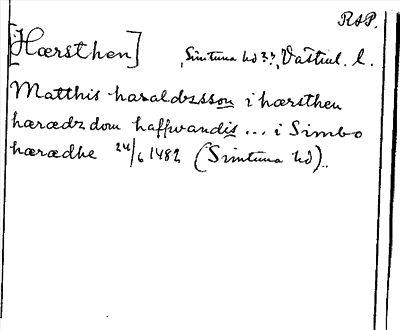 RAP.
[Hærsthen] , Simtuna hd??, Västml. l.
Matthis haraldzsson i hærsthen
hærædz dom haffwandis ... i Simbo
hærædhe 24/6 1482 (Simtuna hd)..